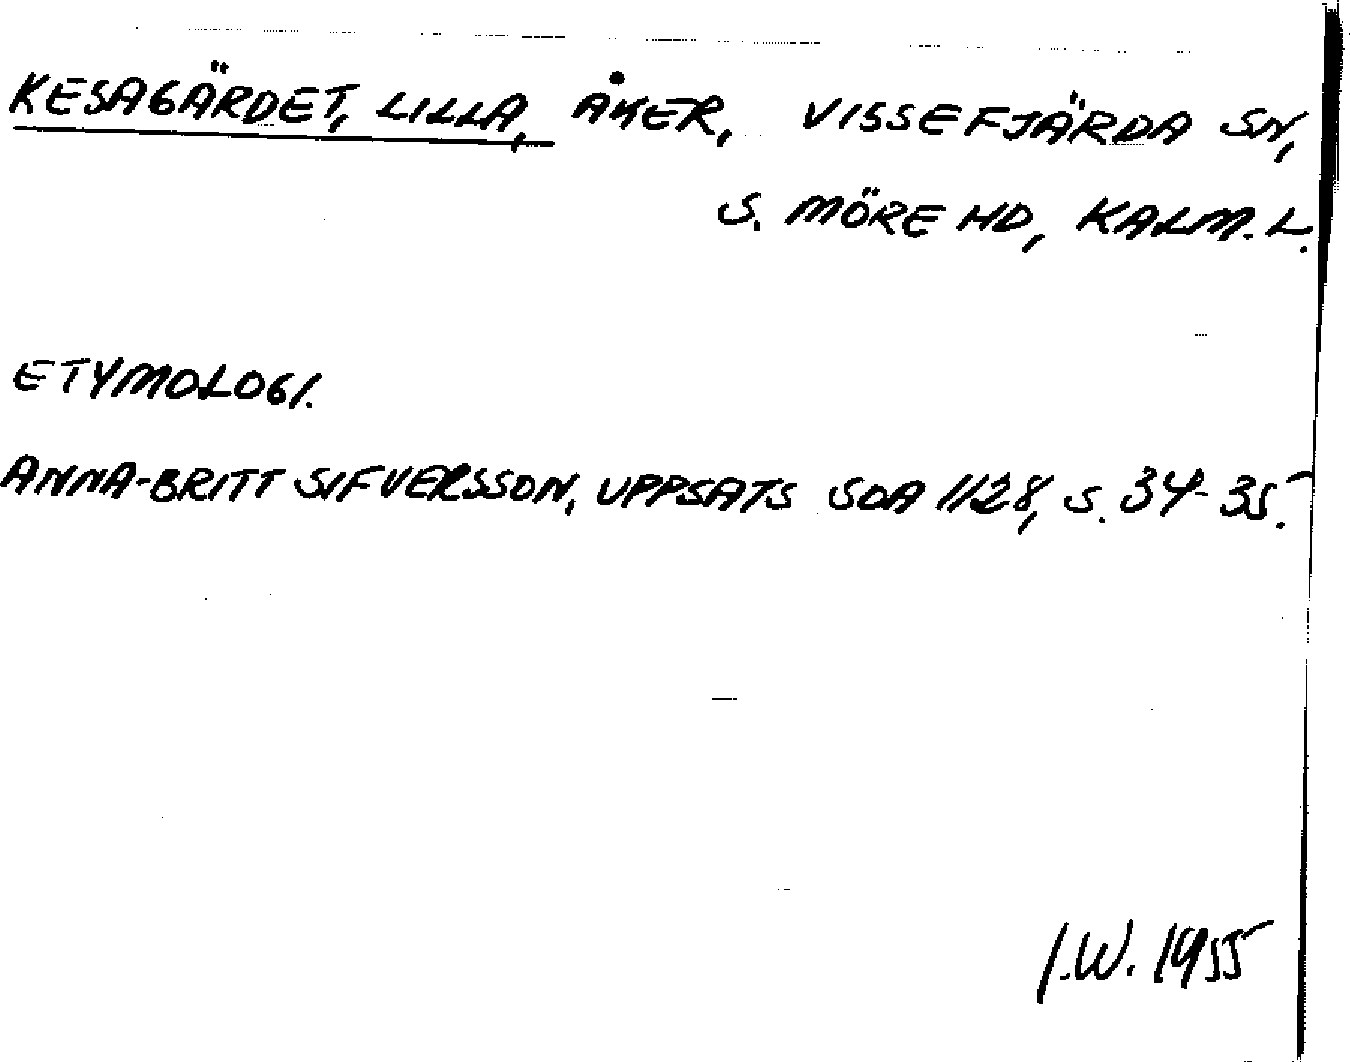 KESAGÄRDET, LILLA, ÅKER, VISSEFJÄRDA SN,
S. MÖRE HD, KALM. L.
ETYMOLOGI.
ANNA-BRITT SIFVERSSON, UPPSATS SOA 1128, S. 34-35.
I.W. 1955